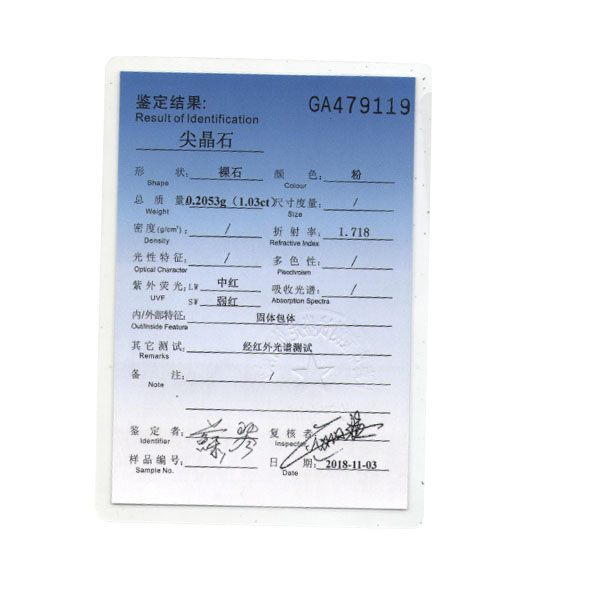 鉴定结果:
GA479119
Result of Identification
尖晶石
形 状: 裸石 颜 色: 粉
Shape Colour
总 质 量: 0.2053g（1.03ct） 尺寸度量: /
Weight Size
密度(g/cm³): / 折 射 率: 1.718
Density Refractive Index
光性特征: / 多 色 性: /
Optical Character Pleochroism
紫外荧光: LW 中红 吸收光谱: /
UVF SW 弱红 Absorption Spectra
内/外部特征: 固体包体
Out/Inside Feature
其它测试: 经红外光谱测试
Remarks
备 注: /
Note
鉴 定 者: 复 核 者:
Identifier Inspector
样品编号: 日 期: 2018-11-03
Sample No. Date